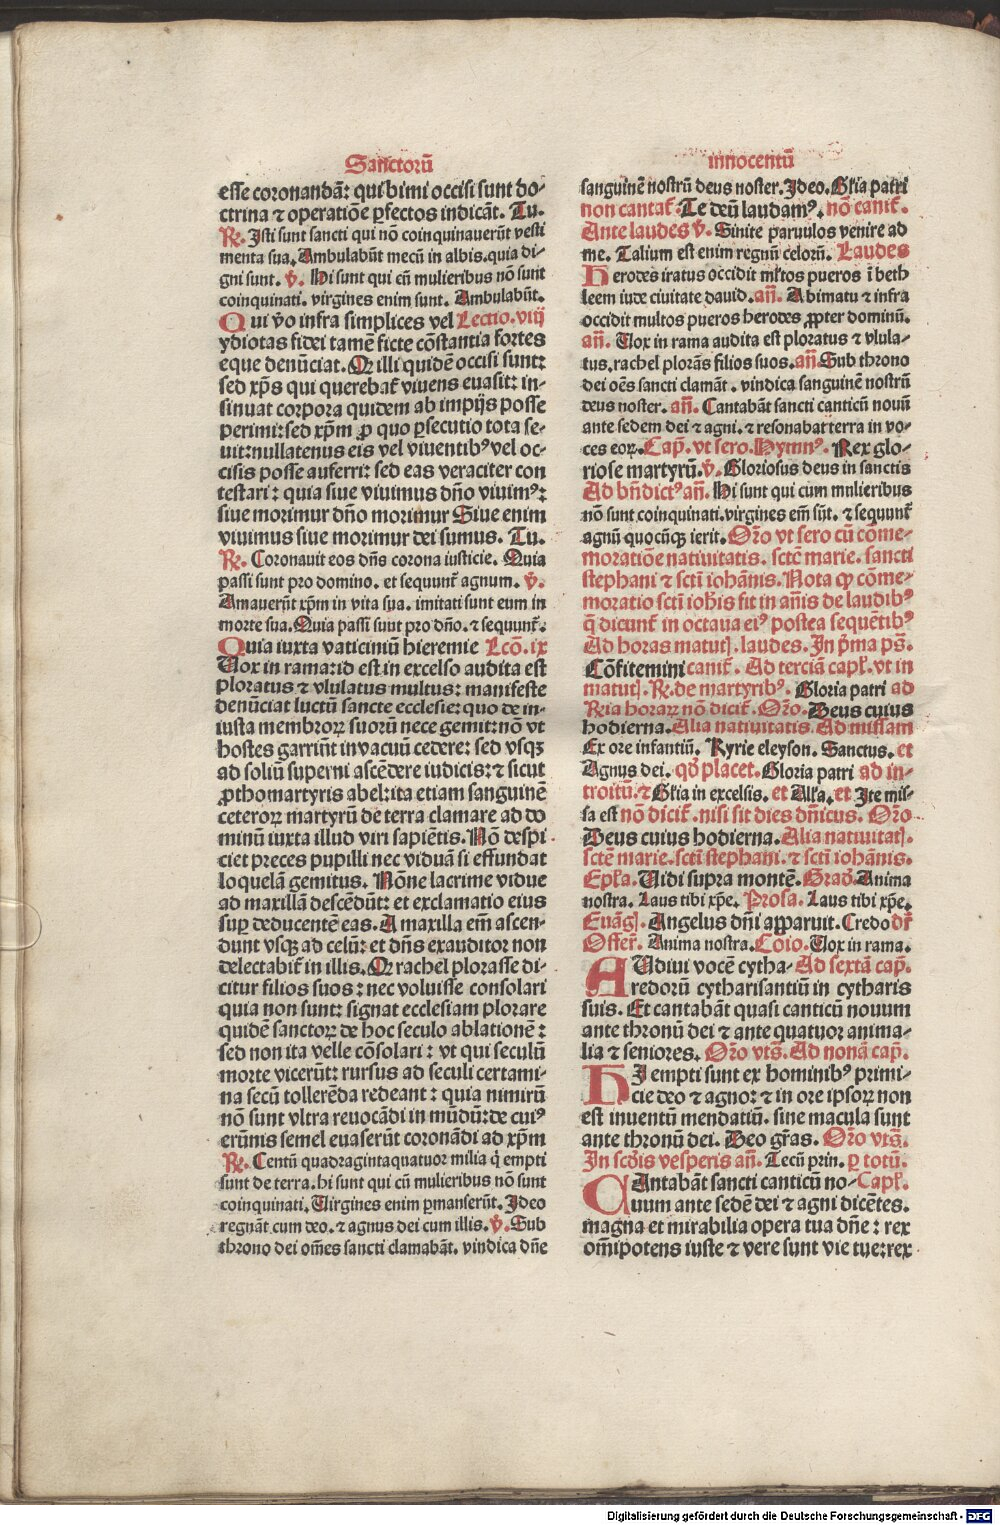 Sanctorū
esse coronandā: qui bimi occisi sunt do-
ctrina ⁊ operatiōe ꝑfectos indicāt. Tu.
℞. Isti sunt sancti qui nō coinquinauerūt vesti
menta sua. Ambulabūt mecū in albis. quia di-
gni sunt. ℣. Hi sunt qui cū mulieribus nō sunt
coinquinati. virgines enim sunt. Ambulabūt.
Qui v̄o infra simplices vel Lectio. viij
ydiotas fidei tamē ficte cōstantia fortes
eque denūciat. Qꝛ illi quidē occisi sunt:
sed xp̄s qui querebat᷑ viuens euasit: in-
sinuat corpora quidem ab impijs posse
perimi: sed xp̄m ꝓ quo ꝑsecutio tota se-
uit: nullatenus eis vel viuentibꝰ vel oc-
cisis posse auferri: sed eas veraciter con
testari: quia siue viuimus dn̄o viuimꝰ:
siue morimur dn̄o morimur Siue enim
viuimus siue morimur dei sumus. Tu.
℞. Coronauit eos dn̄s corona iusticie. Quia
passi sunt pro domino. et sequunt᷑ agnum. ℣.
Amauerūt xp̄m in vita sua. imitati sunt eum in
morte sua. Quia passi sunt pro dn̄o. ⁊ sequunt᷑.
Quia iuxta vaticiniū hieremie Lcō. ix
Vox in rama: id est in excelso audita est
ploratus ⁊ vlulatus multus: manifeste
denūciat luctū sancte ecclesie: quo de in-
iusta membroꝝ suorū nece gemit: nō vt
hostes garriūt in vacuū cedere: sed vsqꝫ
ad soliū superni ascēdere iudicis: ⁊ sicut
ꝓthomartyris abel: ita etiam sanguinē
ceteroꝝ martyrū de terra clamare ad do
minū iuxta illud viri sapiētis. Nō despi
ciet preces pupilli nec viduā si effundat
loquelā gemitus. Nōne lacrime vidue
ad maxillā descēdūt: et exclamatio eius
suꝑ deducentē eas. A maxilla em̄ ascen-
dunt vsqꝫ ad celū: et dn̄s exauditor non
delectabit᷑ in illis. Qꝛ rachel plorasse di-
citur filios suos: nec voluisse consolari
quia non sunt: signat ecclesiam plorare
quidē sanctoꝝ de hoc seculo ablationē:
sed non ita velle cōsolari: vt qui seculū
morte vicerūt: rursus ad seculi certami-
na secū tollerēda redeant: quia nimirū
nō sunt vltra reuocādi in mūdū: de cuiꝰ
erūnis semel euaserūt coronādi ad xp̄m
℞. Centū quadragintaquatuor milia q̄ empti
sunt de terra. hi sunt qui cū mulieribus nō sunt
coinquinati. Virgines enim ꝑmanserūt. Ideo
regnāt cum deo. ⁊ agnus dei cum illis. ℣. Sub
throno dei om̄es sancti clamabāt. vindica dn̄e
innocentū
sanguinē nostrū deus noster. Ideo. Gl̄ia patri
non cantat᷑. Te deū laudamꝰ. nō canit᷑.
Ante laudes ℣. Sinite paruulos venire ad
me. Talium est enim regnū celorū. Laudes
Herodes iratus occidit ml̄tos pueros ī beth
leem iude ciuitate dauid. an̄. A bimatu ⁊ infra
occidit multos pueros herodes ꝓpter dominū.
an̄. Vox in rama audita est ploratus ⁊ vlula-
tus. rachel plorās filios suos. an̄. Sub throno
dei oēs sancti clamāt. vindica sanguinē nostrū
deus noster. an̄. Cantabāt sancti canticū nouū
ante sedem dei ⁊ agni. ⁊ resonabat terra in vo-
ces eoꝝ. Cap̄. vt sero. Hymnꝰ. Rex glo-
riose martyrū. ℣. Gloriosus deus in sanctis
Ad bn̄dictꝰ an̄. Hi sunt qui cum mulieribus
nō sunt coinquinati. virgines em̄ sūt. ⁊ sequunt᷑
agnū quocūqꝫ ierit. Or̄o vt sero cū cōme-
moratiōe natiuitatis. sctē marie. sancti
stephani ⁊ sctī iohānis. Nota qꝙ cōme-
moratio sctī ioh̄is fit in an̄is de laudibꝰ
q̄ dicunt᷑ in octaua eiꝰ postea sequētibꝰ
Ad horas matut. laudes. In p̄ma ps̄.
Cōfitemini canit᷑. Ad terciā capl̄. vt in
matut. ℞. de martyribꝰ. Gloria patri ad
℞ia horaꝝ nō dicit᷑. Or̄o. Deus cuius
hodierna. Alia natiuitatis Ad missam
Ex ore infantiū. Kyrie eleyson. Sanctus. et
Agnus dei. qd̄ placet. Gloria patri ad in-
troitū. ⁊ Gl̄ia in excelsis. et All̄a. et Ite mis-
sa est nō dicit᷑. nisi sit dies dn̄icus. Or̄o
Deus cuius hodierna. Alia natiuitat.
sctē marie. sctī stephani. ⁊ sctī iohānis.
Epl̄a. Vidi supra montē. Grad̄. Anima
nostra. Laus tibi xp̄e. Prosa. Laus tibi xp̄e.
Euāgl. Angelus dn̄i apparuit. Credo dr̄
Offer̄. Anima nostra. Cōio. Vox in rama.
AUdiui vocē cytha- Ad sextā cap̄.
redorū cytharisantiū in cytharis
suis. Et cantabāt quasi canticū nouum
ante thronū dei ⁊ ante quatuor anima-
lia ⁊ seniores. Or̄o vts̄. Ad nonā cap̄.
HI empti sunt ex hominibꝰ primi-
cie deo ⁊ agno: ⁊ in ore ipsoꝝ non
est inuentū mendatiū. sine macula sunt
ante thronū dei. Deo gr̄as. Or̄o vts̄.
In scd̄is vesperis an̄. Tecū prin. ꝑ totū.
CAntabāt sancti canticū no- Capl̄.
uum ante sedē dei ⁊ agni dicētes.
magna et mirabilia opera tua dn̄e: rex
om̄ipotens iuste ⁊ vere sunt vie tue: rex
Digitalisierung gefördert durch die Deutsche Forschungsgemeinschaft - DFG